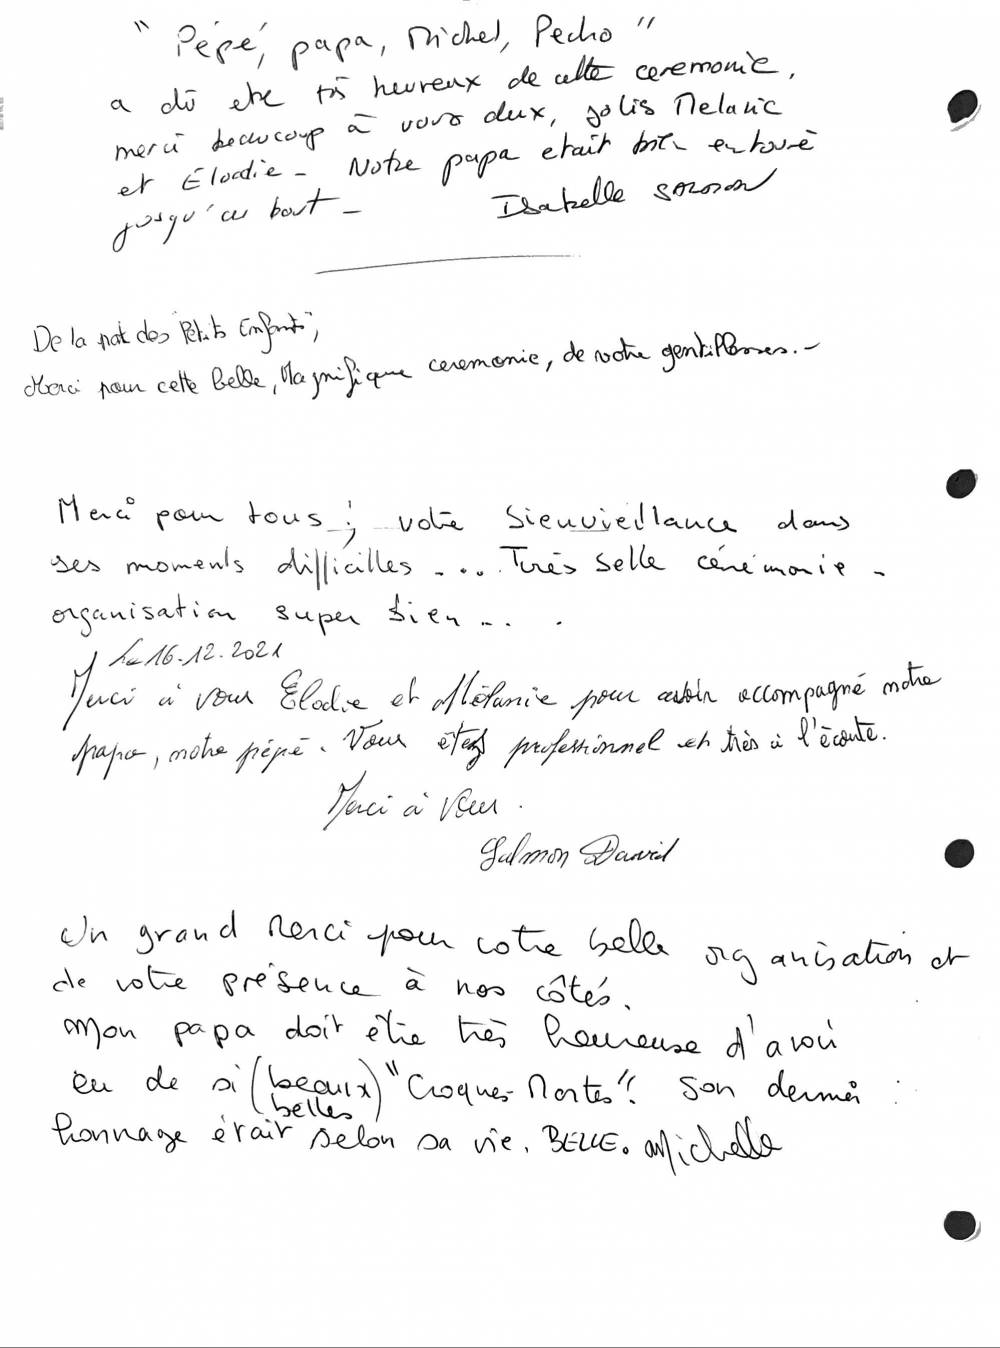 " Pépé, papa, Michel, Pecho "
a dû etre très heureux de cette ceremonie,
merci beaucoup à vous deux, jolis Melanie
et Elodie - Notre papa etait bien entouré
jusqu'au bout - Isabelle SALMON
De la part des "Petits Enfants",
Merci pour cette belle, Magnifique ceremonie, de votre gentillesses.-
Merci pour tous ; votre bienvieillance dans
ses moments difficilles .... Très belle cérémonie -
organisation super bien ...
Le 16.12.2021
Merci à vous Elodie et Mélanie pour avoir accompagné notre
papa, notre pépé. Vous êtes professionnel et très à l'écoute.
Merci à Vous.
Salmon David
Un grand Merci pour votre belle organisation et
de votre présence à nos côtés.
Mon papa doit être très heureuse d'avoir
eu de si (beaux belles) "Croques-Mortes". Son dernier
honnage était selon sa vie. BELLE. Michelle